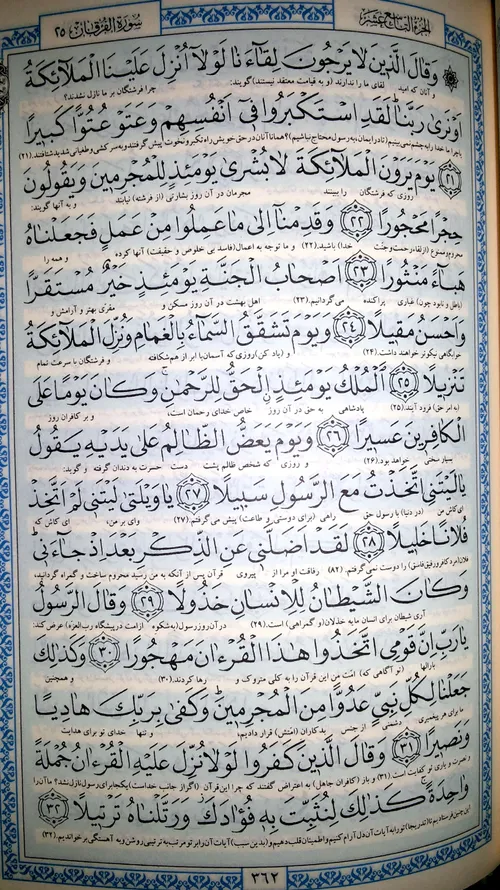 الجزء التاسع عشر
سورة الفرقان ۲۵
وَقَالَ الَّذينَ لَا يَرْجُونَ لِقَآءَنَا لَوْلَا أُنْزِلَ عَلَيْنَا الْمَلَآئِكَةُ
و آنان که امید لقای ما را ندارند (و به قیامت معتقد نیستند) گویند: چرا فرشتگان بر ما نازل نشدند؟
اَوْ نَرىٰ رَبَّنَا لَقَدِ اسْتَكْبَرُوا فى اَنْفُسِهِمْ وَعَتَوْ عُتُوًّا كَبيرًا
یا چرا ما خدا را به چشم نمی‌بینیم
همانا آنان در حق خویش راه تکبر و نخوت پیش گرفتند و به سرکشی و طغیانی شدید شتافتند. (۲۱)
﴿٢١﴾ يَوْمَ يَرَوْنَ الْمَلَآئِكَةَ لَا بُشْرىٰ يَوْمَئِذٍ لِلْمُجْرِمينَ وَيَقُولُونَ
روزی که فرشتگان را ببینند مجرمان در آن روز بشارتی (از فرشته) نیابند و به آنها گویند:
حِجْرًا مَحْجُورًا ﴿٢٢﴾ وَقَدِمْنَآ اِلىٰ مَا عَمِلُوا مِنْ عَمَلٍ فَجَعَلْنَاهُ
محروم و ممنوع (از لقاء رحمت و جنّت خدا) باشید. (۲۲) و ما توجه به اعمال (فاسد بی خلوص و حقیقت) آنها کرده و همه را
هَبَآءً مَنْثُورًا ﴿٢٣﴾ اَصْحَابُ الْجَنَّةِ يَوْمَئِذٍ خَيْرٌ مُسْتَقَرًّا
(باطل و نابود چون) غباری پراکنده می‌گردانیم. (۲۳) اهل بهشت در آن روز مسکن و مقرّی بهتر و آرامش و
وَاَحْسَنُ مَقيلًا ﴿٢٤﴾ وَيَوْمَ تَشَقَّقُ السَّمَآءُ بِالْغَمَامِ وَنُزِّلَ الْمَلَآئِكَةُ
خوابگاهی نیکوتر خواهند داشت. (۲۴) و (یاد کن) روزی که آسمان با ابر از هم شکافته و فرشتگان با سرعت تمام
تَنْزيلًا ﴿٢٥﴾ اَلْمُلْكُ يَوْمَئِذٍ الْحَقُّ لِلرَّحْمٰنِ وَكَانَ يَوْمًا عَلَى
(به امر حق) فرود آیند. (۲۵) پادشاهی به حق در آن روز خاص خدای رحمان است، و بر کافران روز
الْكَافِرينَ عَسيرًا ﴿٢٦﴾ وَيَوْمَ يَعَضُّ الظَّالِمُ عَلىٰ يَدَيْهِ يَقُولُ
بسیار سختی خواهد بود. (۲۶) و روزی که شخص ظالم پشت دست حسرت به دندان گرفته و گوید:
يَالَيْتَنِى اتَّخَذْتُ مَعَ الرَّسُولِ سَبيلًا ﴿٢٧﴾ يَاوَيْلَتىٰ لَيْتَنى لَمْ اَتَّخِذْ
ای کاش من (در دنیا) با رسول حق راهی (برای دوستی و طاعت) پیش می‌گرفتم. (۲۷) وای بر من، ای کاش که
فُلَانًا خَليلًا ﴿٢٨﴾ لَقَدْ اَضَلَّنى عَنِ الذِّكْرِ بَعْدَ اِذْ جَآءَنى
را دوست نمی‌گرفتم. (۲۸) رفاقت او مرا از پیروی قرآن پس از آنکه به من رسید محروم ساخت و گمراه گردانید،
وَكَانَ الشَّيْطَانُ لِلْاِنْسَانِ خَذُولًا ﴿٢٩﴾ وَقَالَ الرَّسُولُ
آری شیطان برای انسان مایه خذلان (و گمراهی) است. (۲۹) در آن روز رسول (به شکوه از امت در پیشگاه رب العزّه) عرض کند:
يَارَبِّ اِنَّ قَوْمِى اتَّخَذُوا هٰذَا الْقُرْءَانَ مَهْجُورًا ﴿٣٠﴾ وَكَذٰلِكَ
بارالها (تو آگاهی که) امّت من این قرآن را به کلی متروک و رها کردند. (۳۰) و همچنین
جَعَلْنَا لِكُلِّ نَبِىٍّ عَدُوًّا مِنَ الْمُجْرِمينَ وَكَفىٰ بِرَبِّكَ هَادِيًا
ما برای هر پیغمبری دشمنی از جنس بدکاران (امتش) قرار دادیم، و تنها خدای تو برای هدایت
وَنَصيرًا ﴿٣١﴾ وَقَالَ الَّذينَ كَفَرُوا لَوْلَا نُزِّلَ عَلَيْهِ الْقُرْءَانُ جُمْلَةً
و نصرت و یاری تو کفایت است. (۳۱) و باز (کافران جاهل) به اعتراض گفتند که چرا این قرآن (اگر از جانب خداست) یکجا برای رسول نازل نشد؟ ما آن را
وَاحِدَةً كَذٰلِكَ لِنُثَبِّتَ بِهِ فُؤَادَكَ وَرَتَّلْنَاهُ تَرْتيلًا ﴿٣٢﴾
این چنین فرستادیم تا (تدریجاً) تو را به آیات آن دل آرام کنیم و اطمینان قلب دهیم و (بدین سبب) آیات آن را بر تو مرتب به ترتیبی روشن و به آهستگی برخواندیم. (۳۲)
۳۶۲